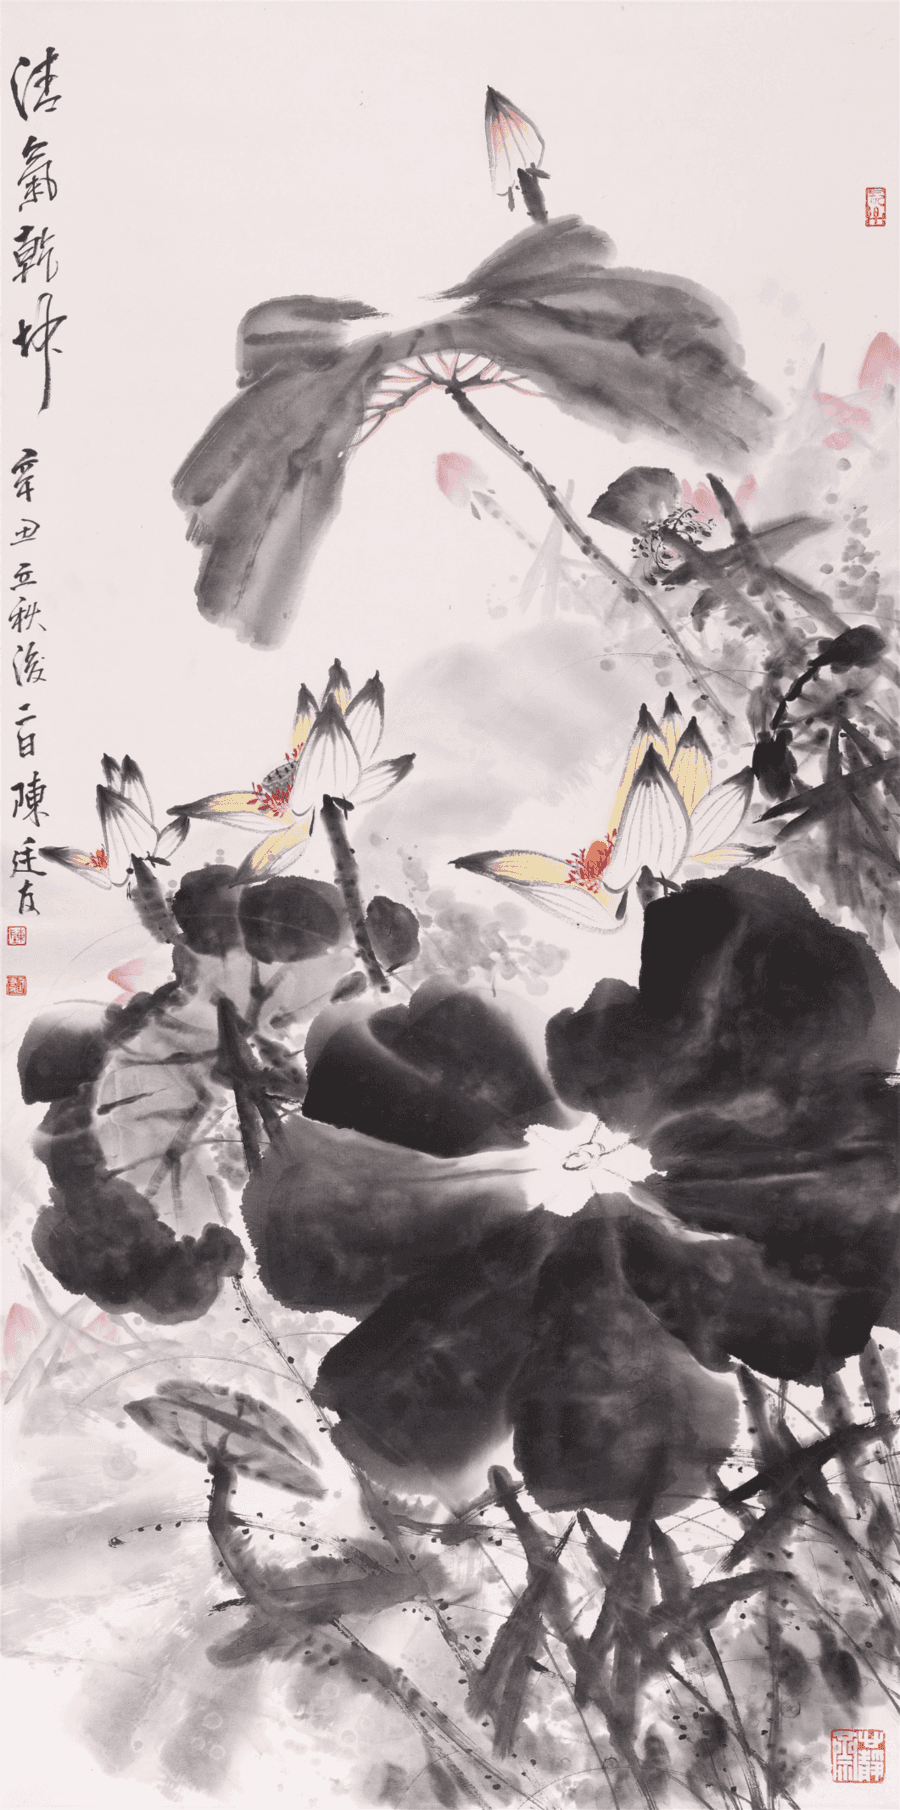 清氣乾坤
辛丑立秋後二日陳廷友